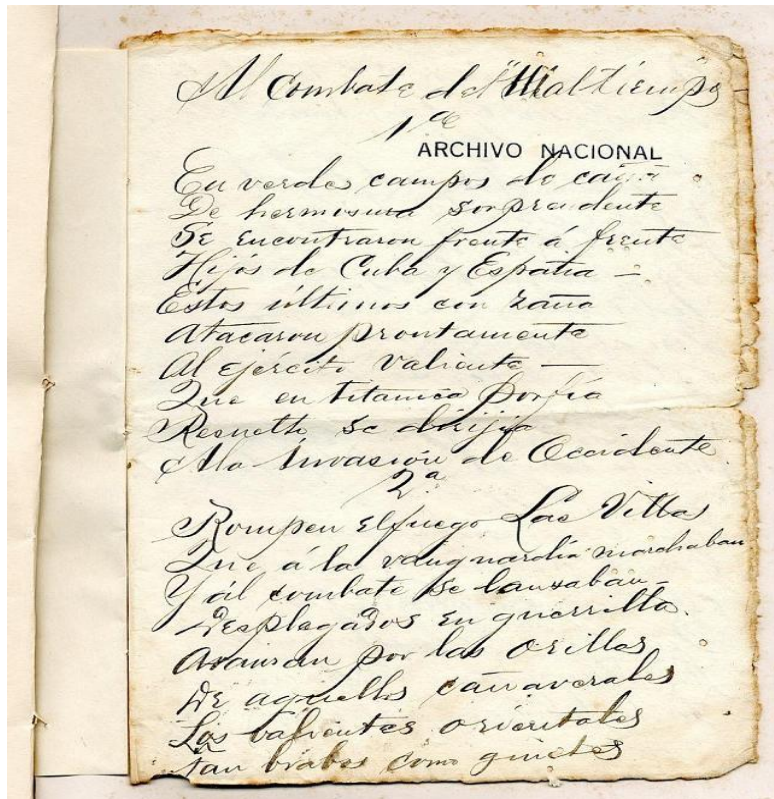 Al Combate del "Maltiempo
1ª
ARCHIVO NACIONAL
En verdes campos de caña
De hermosura sorprendente
Se encontraron frente á frente
Hijos de Cuba y España –
Estos últimos con zaña
Atacaron prontamente
Al ejército valiente –
Que en titanica porfía
Resuelto se dirijia
Ala Invasión de Occidente
2ª
Rompen el fuego Las Villas
Que á la vanguardia marchaban
Y al combate se lanzaban –
Desplegados en guerrilla.
Avanzan por las orillas
De aquellos cañaverales
Los valientes orientales
Tan brabos como ginetes